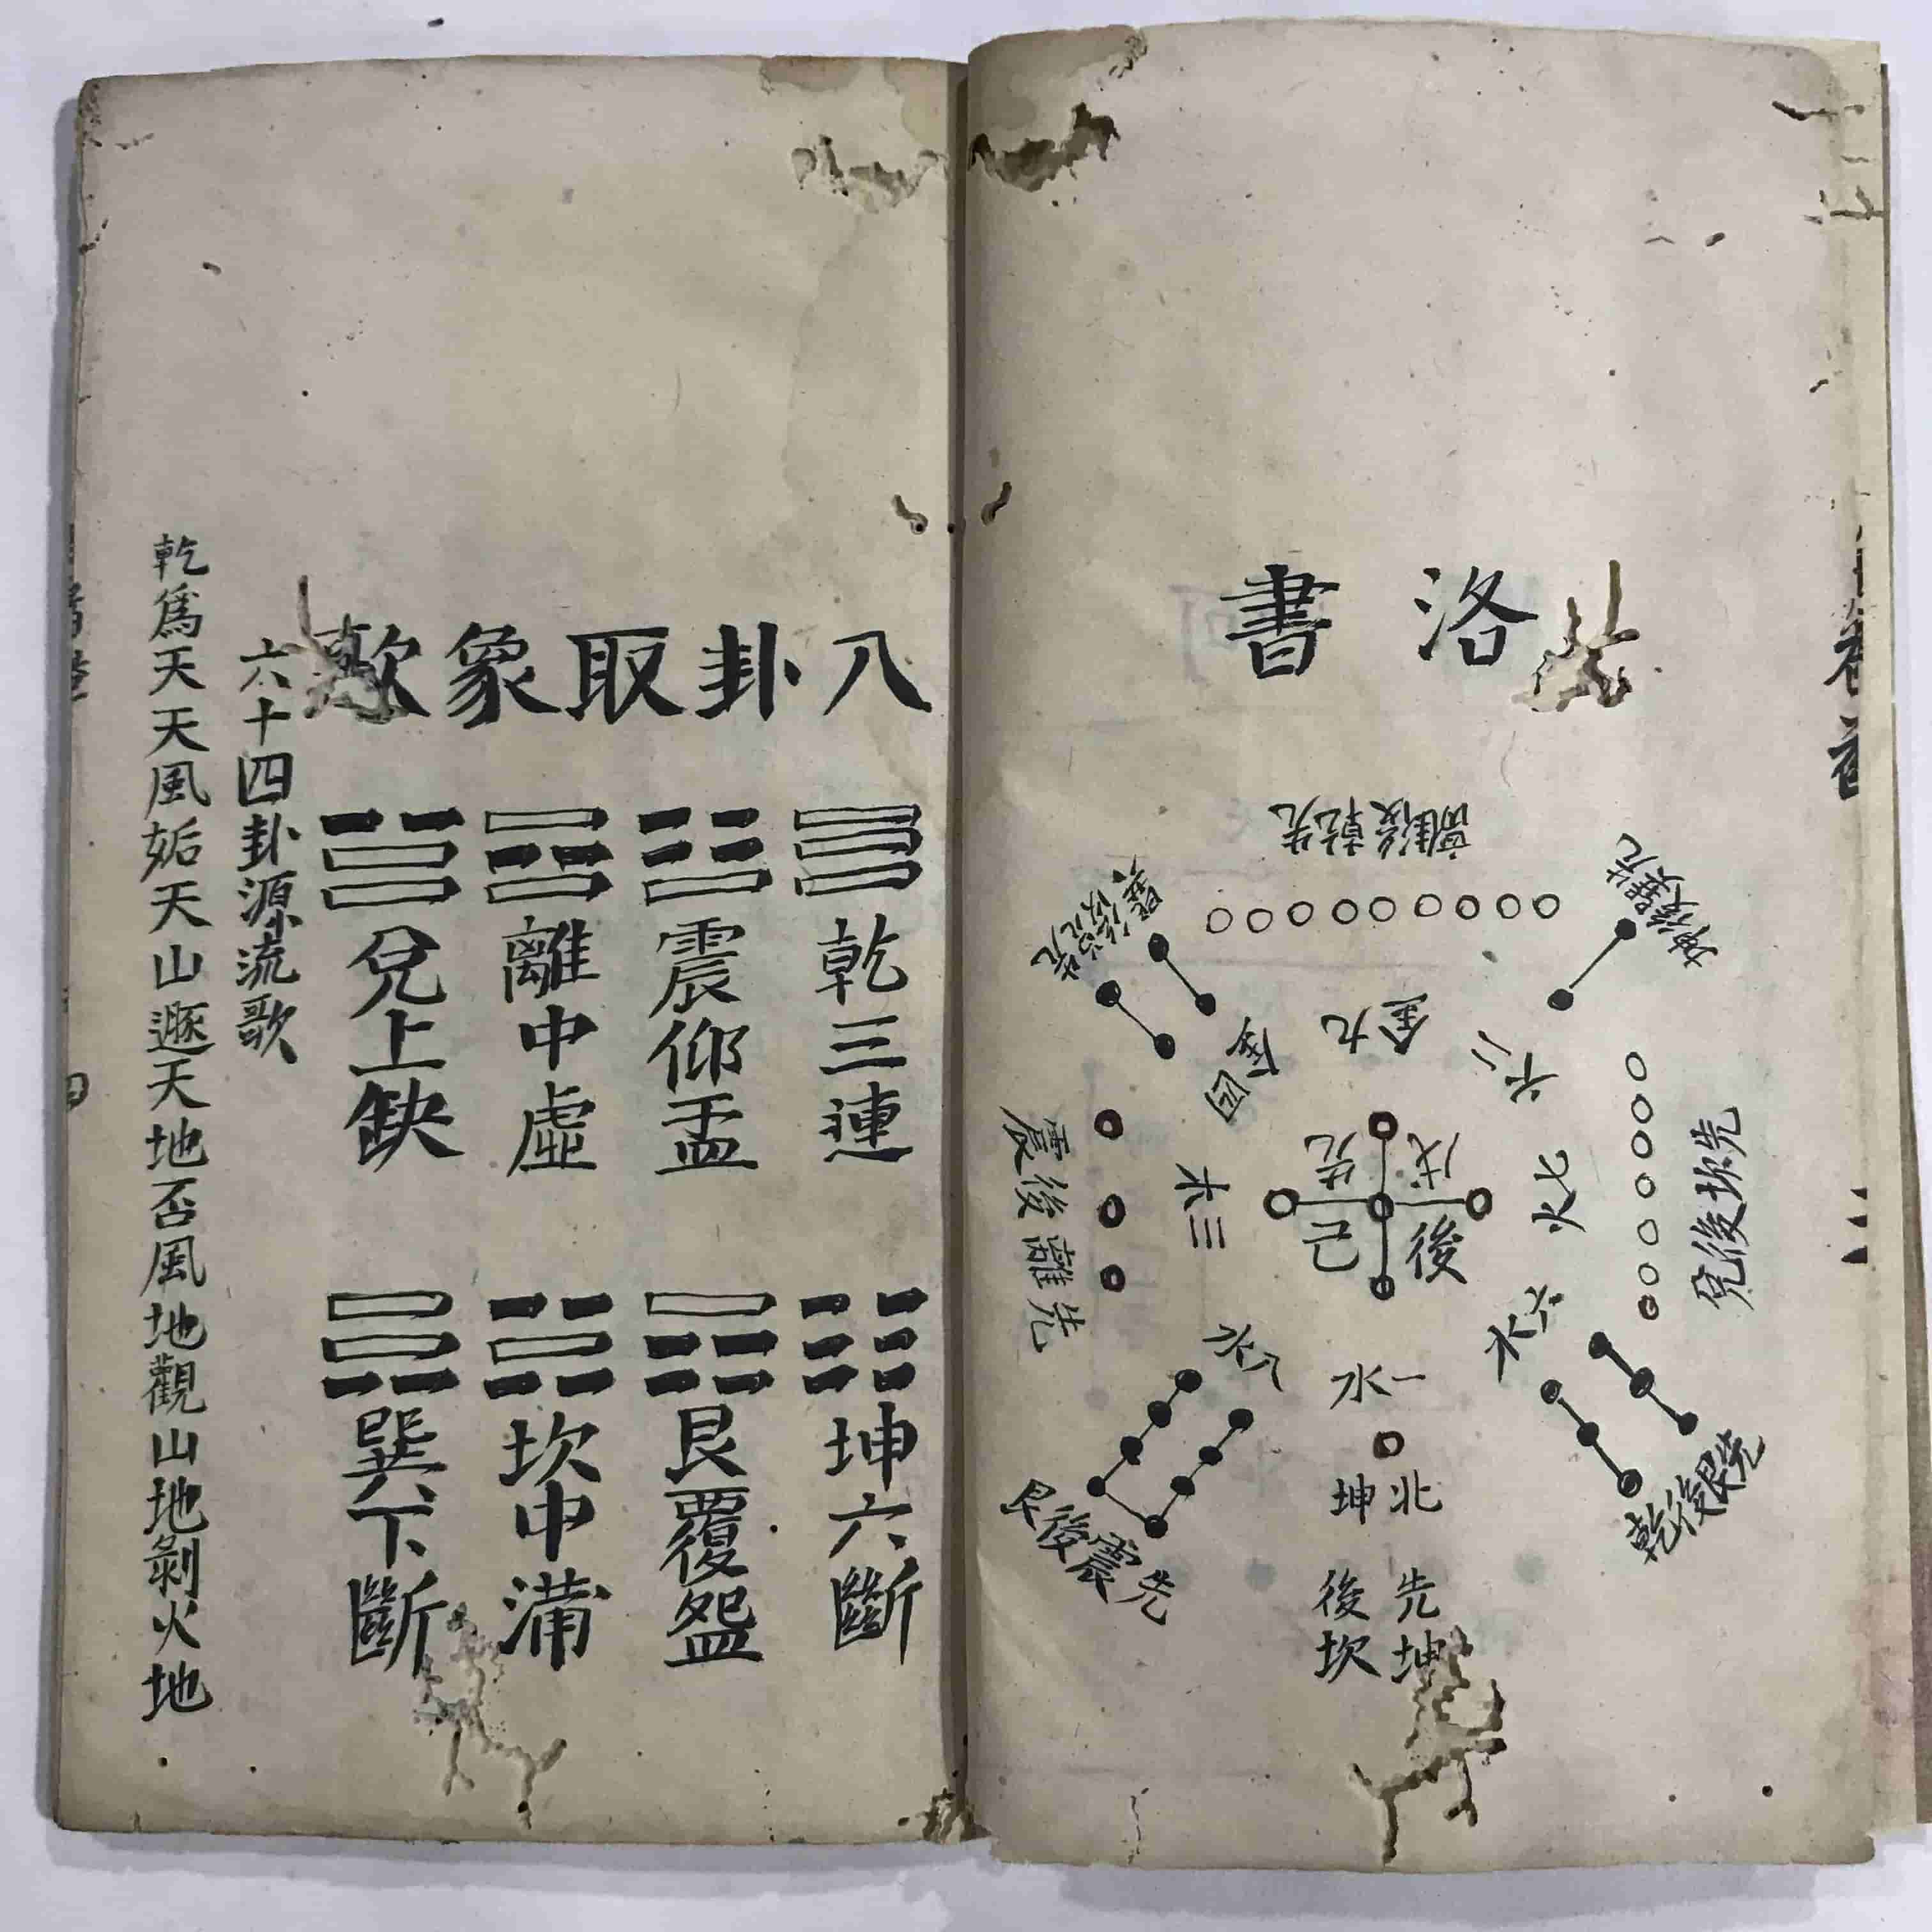 洛書
離後乾先
坤後巽先
巽後兌先
金九
四金
木二
火七
兌後坎先
三木
震後離先
先戊
己後
木八
艮後震先
一水
水六
乾後艮先
北坤
先坤
後坎
八卦取象歌
乾三連
震仰盂
離中虛
兌上缺
坤六斷
艮覆盌
坎中滿
巽下斷
六十四卦源流歌
乾為天天風姤天山遯天地否風地觀山地剝火地